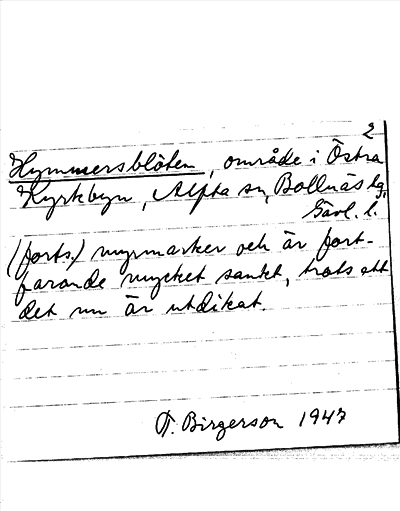 2
Hymmersblöten, område i Östra
Kyrkbyn, Alfta sn, Bollnäs tg,
Gävl. l.
(forts.) myrmarker och är fort-
farande mycket sankt, trots att
det nu är utdikat.
T. Birgerson 1947